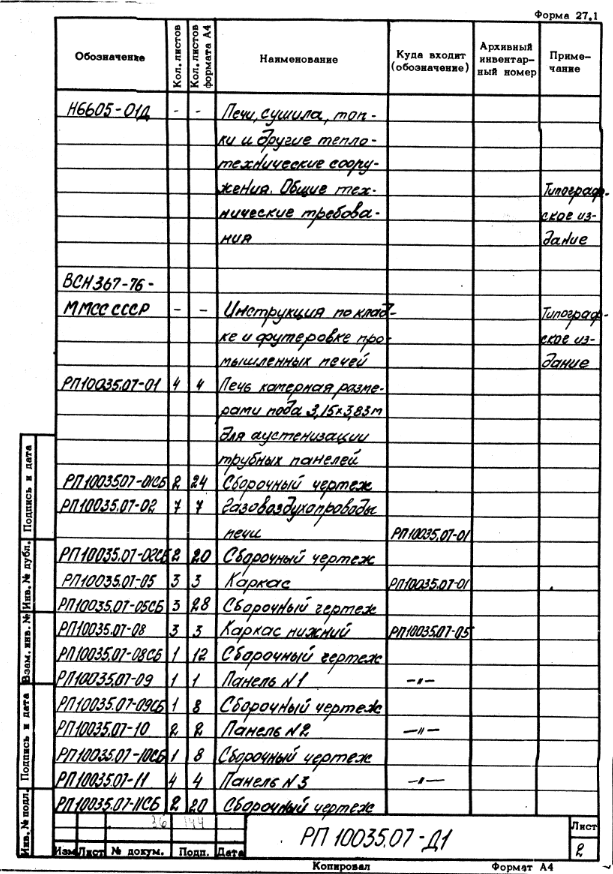 Форма 27.1
Обозначение Кол. листов Кол. листов формата А4 Наименование Куда входит (обозначение) Архивный инвентарный номер Примечание
Н6605-01Д - - Печи, сушила, топ-
ки и другие тепло-
технические соору-
жения. Общие тех- Типограф-
нические требова- ское из-
ния дание
ВСН367-76-
ММСС СССР - - Инструкция по клад-
Типограф-
ке и футеровке про- ское из-
мышленных печей дание
РП10035.07-01 4 4 Печь камерная разме-
рами пода 3,15×3,83м
для аустенизации
трубных панелей
РП10035.07-01СБ 2 24 Сборочный чертеж
РП10035.07-02 7 7 Газовоздухопроводы
печи РП10035.07-01
РП10035.07-02СБ 2 20 Сборочный чертеж
РП10035.07-05 3 3 Каркас РП10035.07-01
РП10035.07-05СБ 3 28 Сборочный чертеж
РП10035.07-08 3 3 Каркас нижний РП10035.07-05
РП10035.07-08СБ 1 12 Сборочный чертеж
РП10035.07-09 1 1 Панель N1 -"-
РП10035.07-09СБ 1 8 Сборочный чертеж
РП10035.07-10 2 2 Панель N2 -"-
РП10035.07-10СБ 1 8 Сборочный чертеж
РП10035.07-11 4 4 Панель N3 -"-
РП10035.07-11СБ 2 20 Сборочный чертеж
Подпись и дата
Инв. № дубл.
Взам. инв. №
Подпись и дата
Инв. № подл.
26 144
Изм Лист № докум. Подп. Дата
РП 10035.07-Д1
Лист
2
Копировал Формат А4